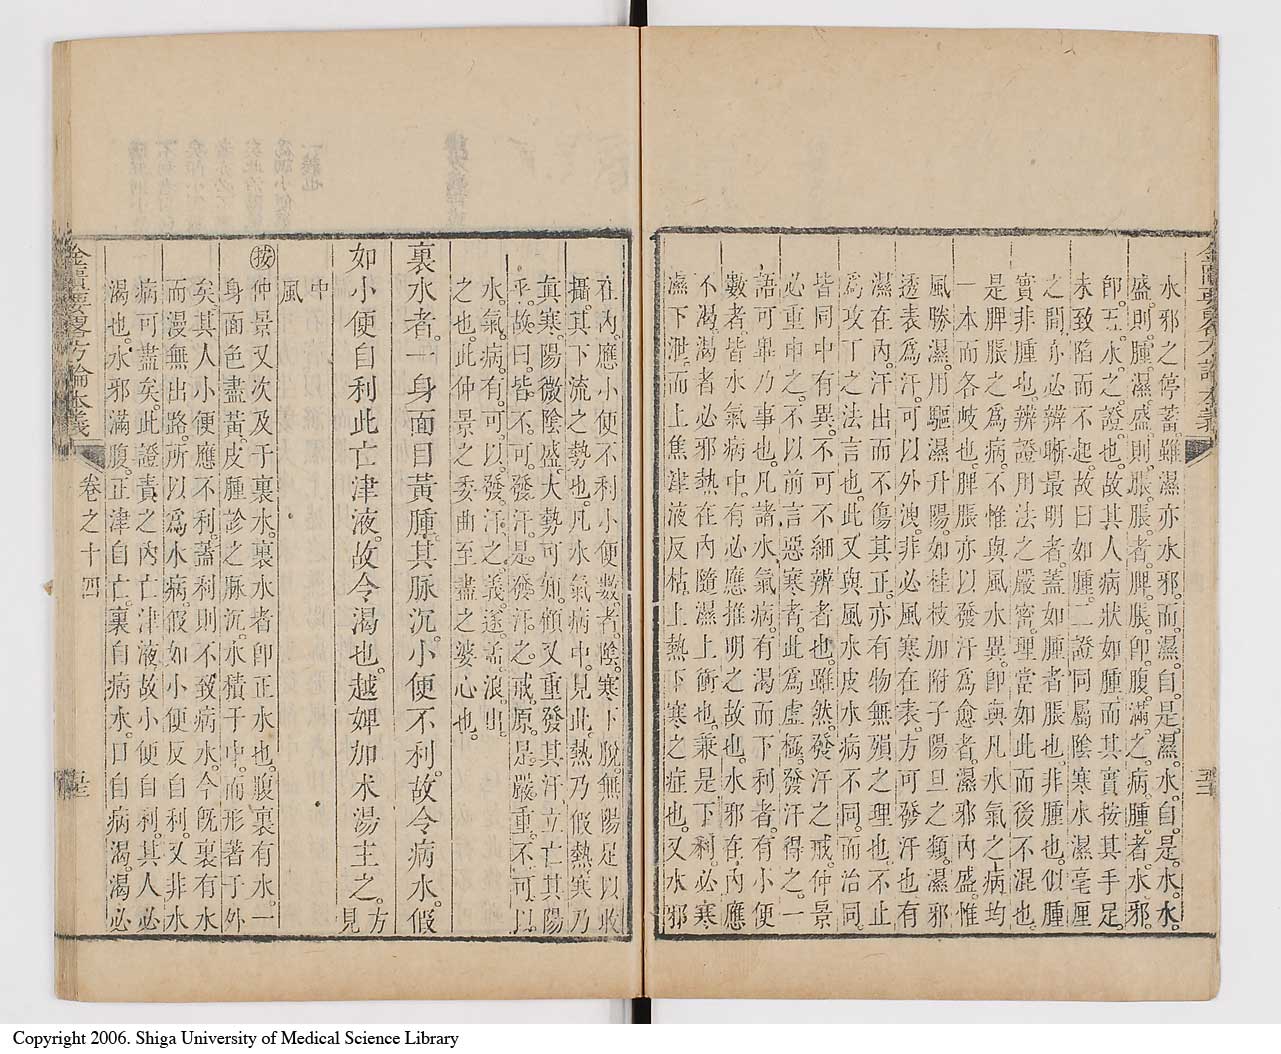 水邪之停蓄雖濕亦水邪而濕自是濕水自是水水
盛則腫濕盛則脹脹者脾脹卽腹滿之病腫者水邪
卽正水之證也故其人病狀如腫而其實按其手足
未致陷而不起故曰如腫二證同屬陰寒水濕毫厘
之間亦必辨晰最明者蓋如腫者脹也非腫也似腫
實非腫也辨證用法之嚴密理當如此而後不混也
是脾脹之為病不惟與風水異卽與凡水氣之病均
一本而各岐也脾脹亦以發汗為愈者濕邪內盛惟
風勝濕用驅濕升陽如桂枝加附子陽旦之類濕邪
透表為汗可以外洩非必風寒在表方可發汗也有
濕在內汗出而不傷其正亦有物無殞之理也不止
為攻丁之法言也此又與風水皮水病不同而治同
皆同中有異不可不細辨者也雖然發汗之戒仲景
必重申之不以前言惡寒者此為虛極發汗得之一
語可畢乃事也凡諸水氣病有渴而下利者有小便
數者皆水氣病中有必應推明之故也水邪在內應
不渴渴者必邪熱在內隨濕上衝也兼是下利必寒
濕下泄而上焦津液反枯上熱下寒之症也又水邪
在內應小便不利小便數者陰寒下脫無陽足以收
攝其下流之勢也凡水氣病中見此熱乃假熱寒乃
真寒陽微陰盛大勢可知傾又重發其汗立亡其陽
乎故曰皆不可發汗是發汗之戒原是嚴重不可以
水氣病有可以發汗之義遂孟浪出
之也此仲景之委曲至盡之婆心也
裏水者一身面目黃腫其脉沉小便不利故令病水假
如小便自利此亡津液故令渴也越婢加术湯主之方見
中風
按仲景又次及于裏水裏水者卽正水也腹裏有水一
身面色盡黃皮腫診之脉沉水積于中而形著于外
矣其人小便應不利蓋利則不致病水今旣裏有水
而漫無出路所以為水病假如小便反自利又非水
病可盡矣此證責之內亡津液故小便自利其人必
渴也水邪滿腹正津自亡裏自病水口自病渴渴必
金匱要畧方論本義
卷之十四